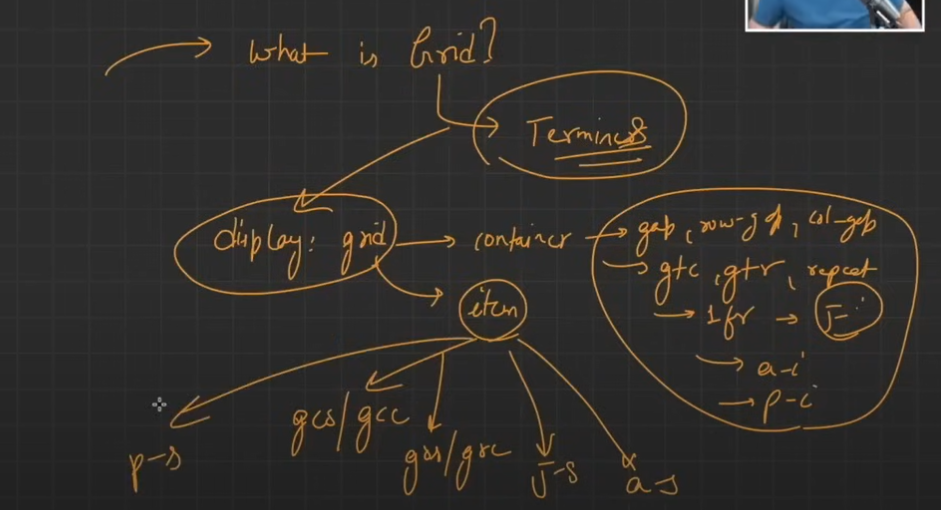 What is Grid?
Termino
display: grid → container → gap, row-gap, col-gap
→ gtc, gtr, repeat
item
→ 1fr → J-i
→ a-i
→ p-i
gcs/gce
grs/gre
p-s
J-s
a-s